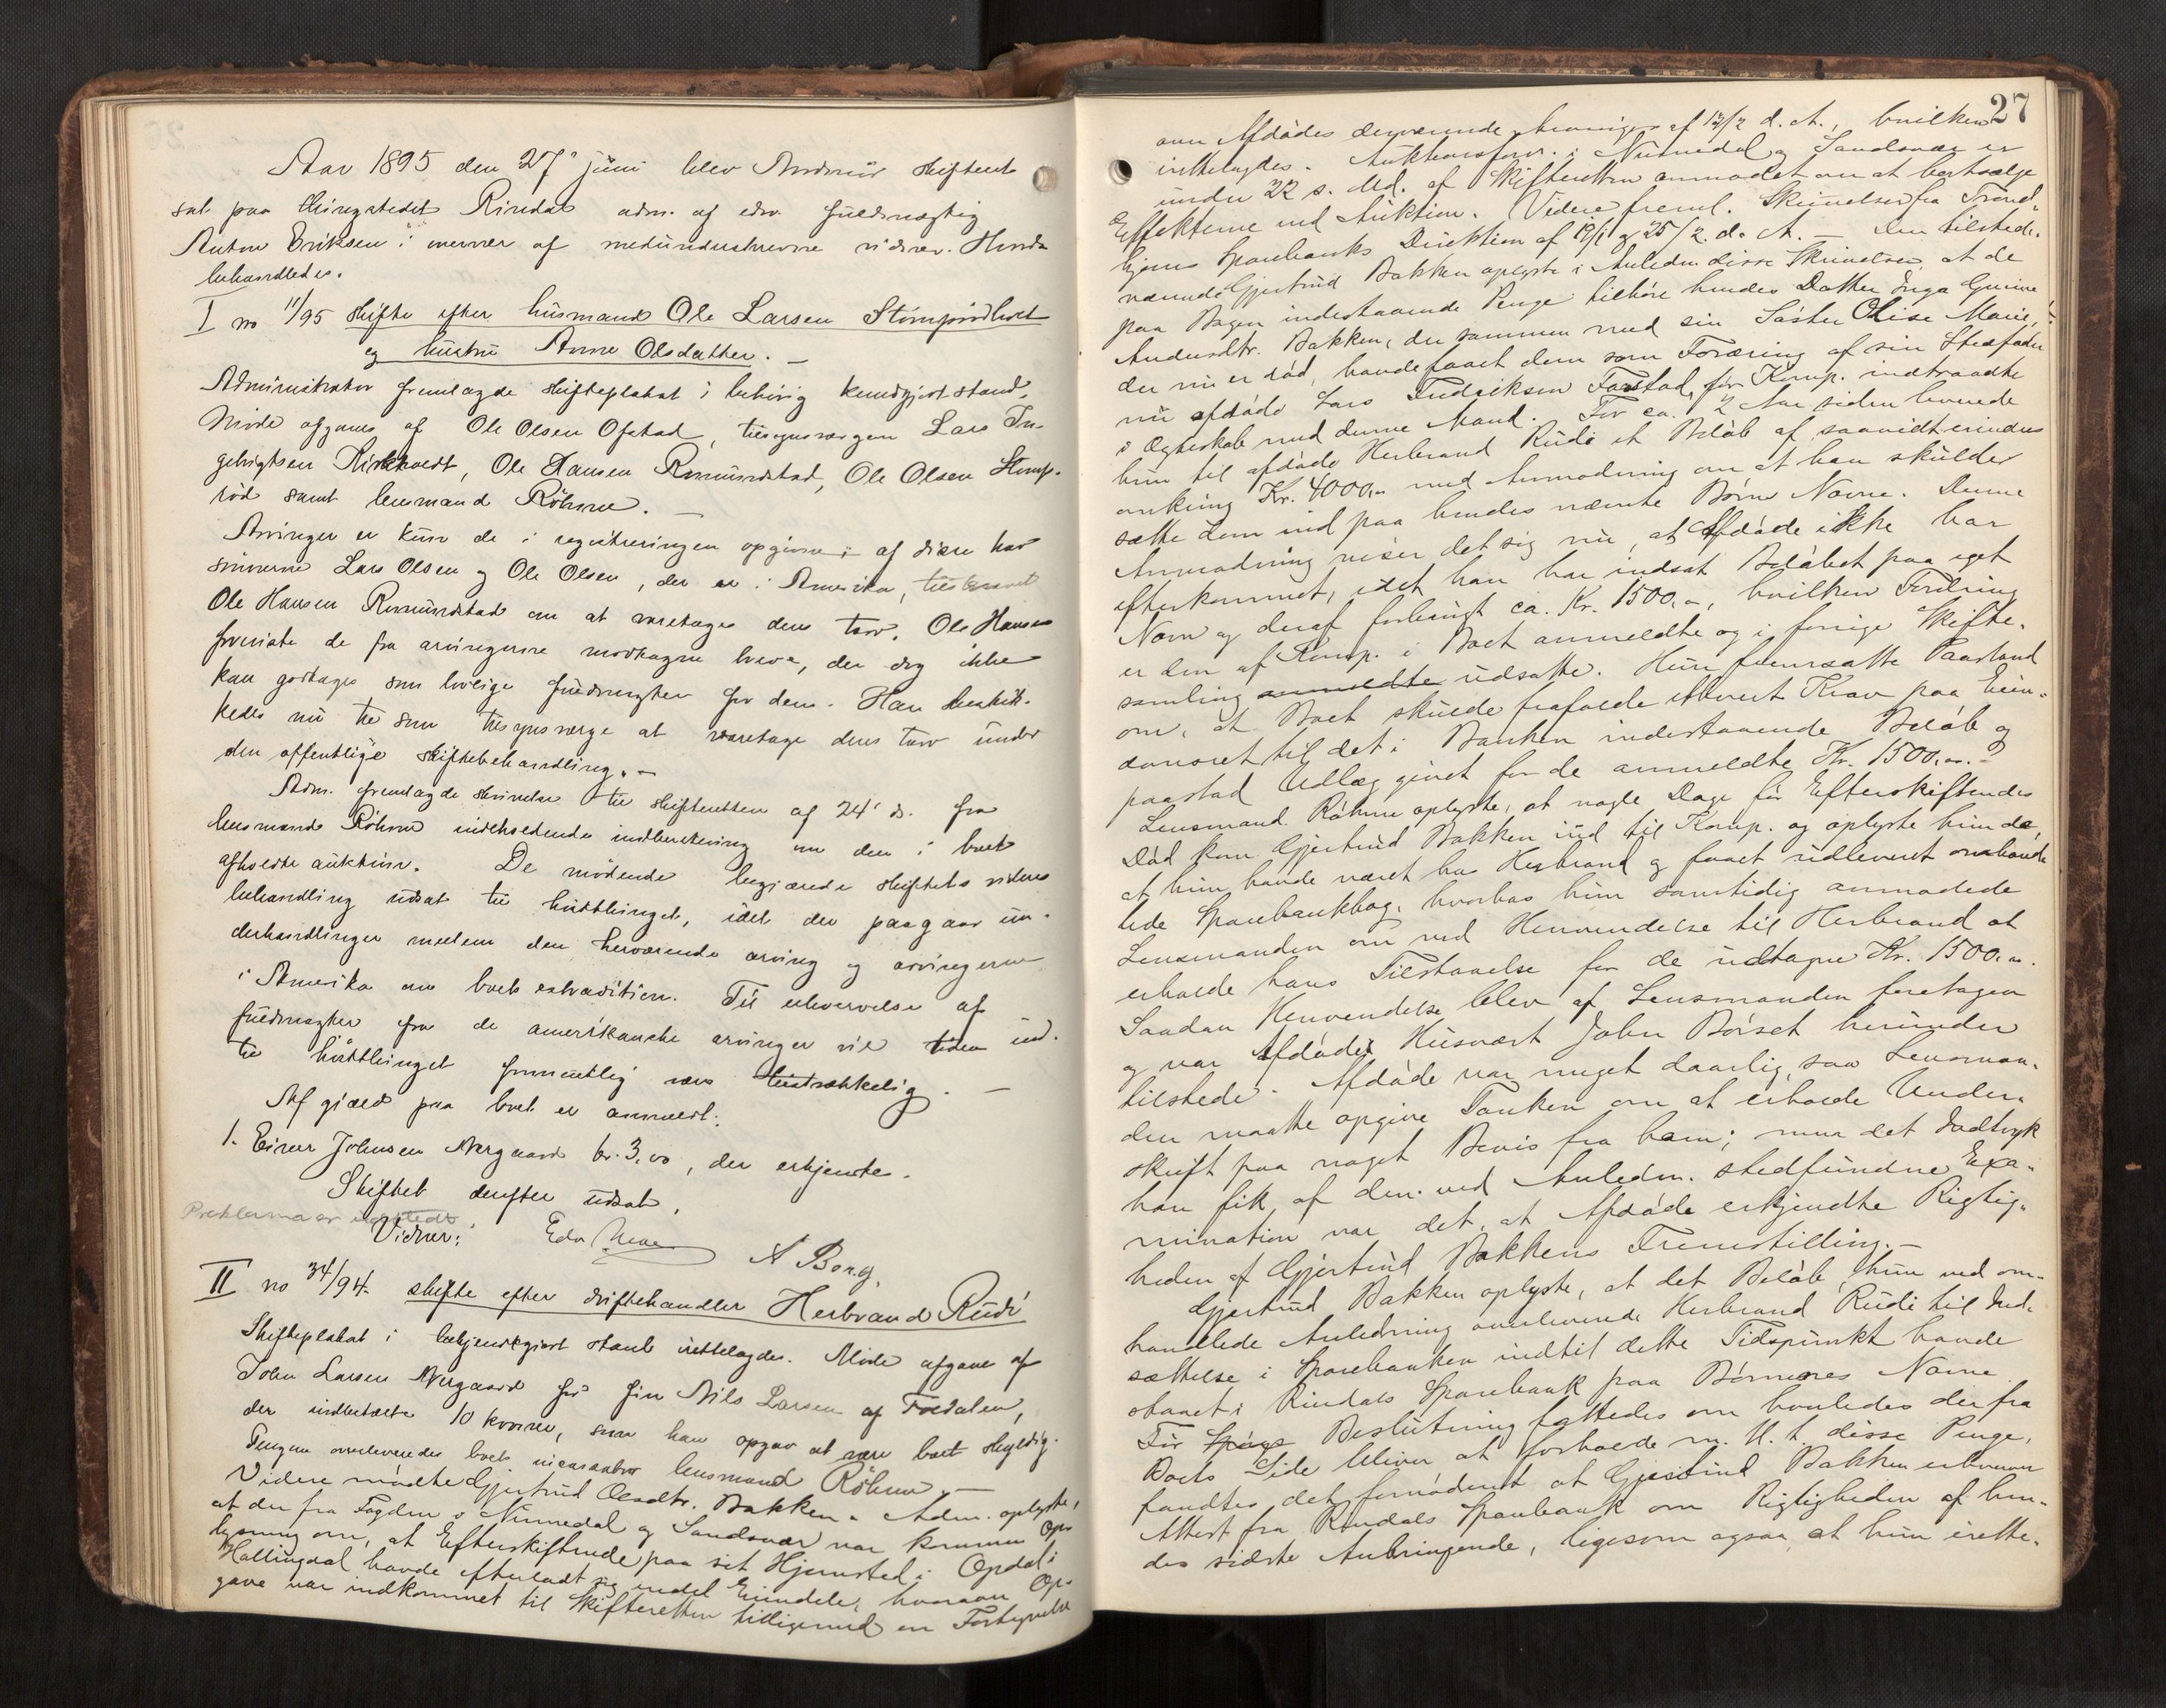 Aar 1895 den 27' juni blev Nordmör skifteret
sat paa thingstedet Rindal adm. af edsv. fuldmægtig
Anton Eriksen i overvær af medunderskrevne vidner. Hvorda
behandledes.
I no 11/95 skifte efter husmand Ole Larsen Stomprödholt
og hustru Anne Olsdatter. —
Administrator fremlagde skifteplakat i behörig kundgjort stand.
Möde afgaves af Ole Olsen Ofstad, tilsynsværgen Lars In-
gebrigtsen Kirkholdt, Ole Hansen Romundstad, Ole Olsen Stomp-
röd samt lensmand Röhme. —
Arvinger er kun de i registreringen opgivne; af disse har
sönnerne Lars Olsen og Ole Olsen, der er i Amerika, tilskrevet
Ole Hansen Romundstad om at varetage deres tarv. Ole Hansen
foreviste de fra arvingerne modtagne breve, der dog ikke
kan godtages som lovlige fuldmagter for dem. Han beskik-
kedes nu til som tilsynsværge at varetage deres tarv under
den offentlige skiftebehandling. —
Adm. fremlagde skrivelse til skifteretten af 24' ds. fra
lensmand Röhme indeholdende indberetning om den i boet
afholdte auktion. De mödende begjærede skiftets videre
behandling udsat til höstthinget, idet der paagaar un-
derhandlinger mellem den herværende arving og arvingerne
i Amerika om boets extradition. Til erhvervelse af
fuldmagter fra de amerikanske arvinger vil tiden ind-
til höstthinget formentlig være tilstrækkelig. —
Af gjæld paa boet er anmeldt:
1. Einar Johnsen Nergaard kr. 3,00, der erkjendtes.
Skiftet derefter udsat.
Proklama er udstedt
Vidner: Edv A Borg.
II no 34/94. skifte efter driftehandler Herbrand Rudi
Skifteplakat i bekjendtgjort stand irettelagdes. Möde afgaves af
John Larsen Nergaard for Nils Larsen af Foldalen,
der indbetalte 10 kroner, som han opgav at være boet skyldig.
Pengene overleveredes boets incassator lensmand Röhme. —
Videre mödte Gjertrud Olsdtr. Bakken. Adm. oplyste,
at der fra Fogden i Numedal og Sandsvær var kommen Op-
lysning om, at Efterskiftende paa sit Hjemsted i Opdal i
Hallingdal havde efterladt sig endel Eiendele, hvoraf Op-
gave var indkommet til Skifteretten tilligemed en Fortegnelse
27
om Afdödes derværende Arvinger af 12/2 d. A., hvilken
irettelagdes. Auktionsforv. i Numedal og Sandsvær er
under 22 s. Md. af Skifteretten anmodet om at bortsælge
Effekterne ved Auktion. Videre freml. Skrivelser fra Trond-
hjems Sparebanks Direktion af 19/1 og 25/2 d. A. — Den tilstede-
værende Gjertrud Bakken oplyste i Anledn. disse Skrivelser, at de
paa Bogen indestaaende Penge tilhöre hendes Datter Inga Gurine
Andersdtr. Bakken, der sammen med sin Söster Olise Marie,
der nu er död, havde faaet dem som Foræring af sin Stedfader
nu afdöde Lars Fredriksen Farstad, för Komp. indtraadte
i Ægteskab med denne Mand. For ca. 2 Aar siden leverede
hun til afdöde Herbrand Rudi et Belöb af saavidt erindres
omkring Kr. 4000,- med Anmodning om at han skulde
sætte dem ind paa hendes nævnte Börns Navne. Denne
Anmodning viser det sig nu, at Afdöde ikke har
efterkommet, idet han har indsat Belöbet paa eget
Navn og deraf forbrugt ca. Kr. 1500,-, hvilken Fordring
er den af Komp. i Boet anmeldte og i forrige Skifte-
samling anmeldte udsatte. Hun fremsatte Paastand
om, at Boet skulde frafalde ethvert Krav paa Eien-
domsret til det i Banken indestaaende Belöb og
paastod Udlæg givet for de anmeldte Kr. 1500,-.—
Lensmand Röhme oplyste, at nogle Dage för Efterskiftendes
Död kom Gjertrud Bakken ind til Komp. og oplyste hun da,
at hun havde været hos Herbrand og faaet udleveret omhand-
lede Sparebankbog, hvorhos hun samtidig anmodede
Lensmanden om ved Henvendelse til Herbrand at
erholde hans Tilstaaelse for de udtagne Kr. 1500,-.
Saadan Henvendelse blev af Lensmanden foretagen
og var Afdödes Husvært John Börset herunder
tilstede. Afdöde var meget daarlig, saa Lensman-
den maatte opgive Tanken om at erholde Under-
skrift paa noget Bevis fra ham; men det Indtryk
han fik af den ved Anledn. stedfundne Exa-
mination var det, at Afdöde erkjendte Rigtig-
heden af Gjertrud Bakkens Fremstilling. —
Gjertrud Bakken oplyste, at det Belöb, hun ved om-
handlede Anledning overleverede Herbrand Rudi til Ind-
sættelse i Sparebanken indtil dette Tidspunkt havde
staaet i Rindals Sparebank paa Börnenes Navne.
För Beslutning fattedes om hvorledes der fra
Boets Side bliver at forholde m. H. t. disse Penge,
fandtes det fornödent at Gjertrud Bakken erhverver
Attest fra Rindals Sparebank om Rigtigheden af hen-
des sidste Anbringende, ligesom ogsaa, at hun irette-